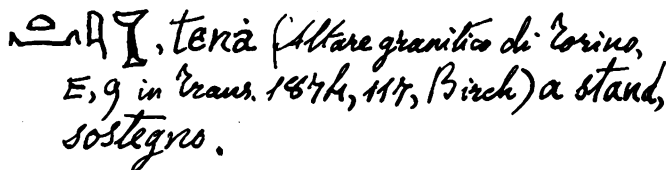 , tenà (Altare granitico di Torino,
E, 9 in Trans. 1874, 117, Birch) a stand,
sostegno.